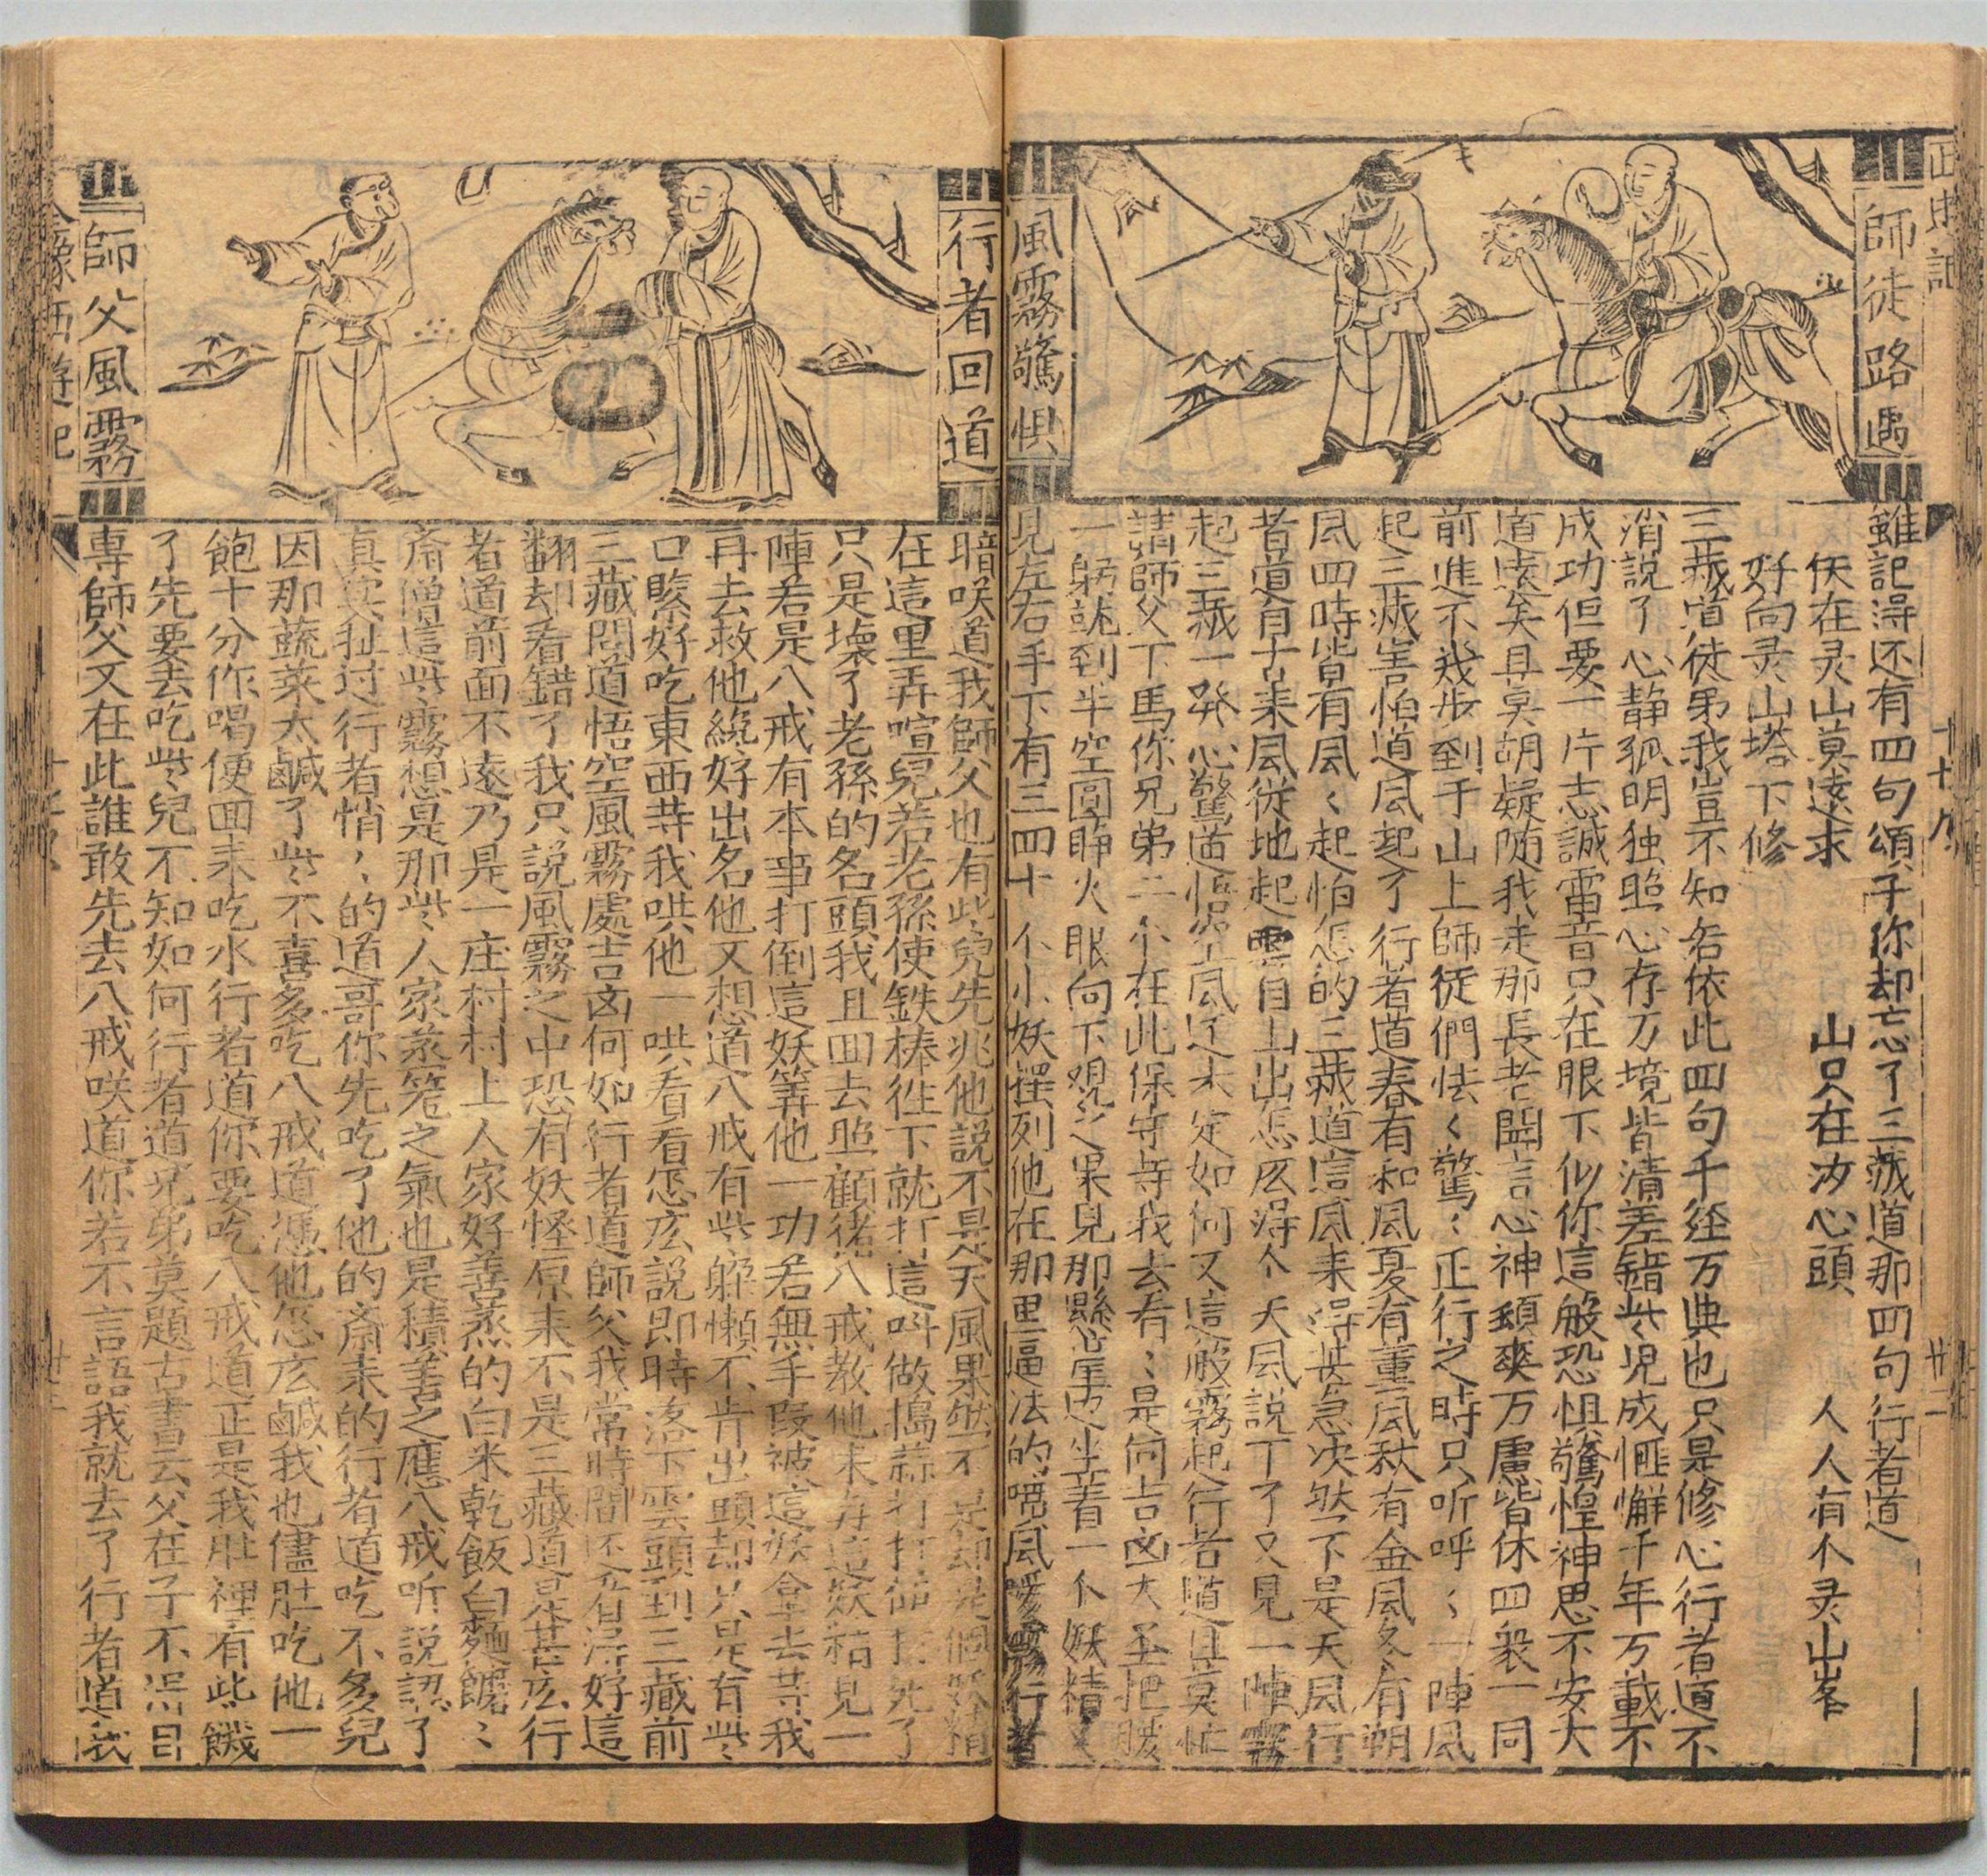 師徒路遇
風霧驚惧
雖記得还有四句頌子你却忘了三藏道那四句行者道
佛在灵山莫遠求 山只在汝心頭 人人有个灵山峯
好向灵山塔下修
三藏道徒弟我豈不知若依此四句千經万典也只是修心行者道不
消說了心静孤明独照心存万境皆清差錯些児成惬懈千年万載不
成功但要一片志誠雷音只在眼下似你這般恐惧驚惶神思不安大
道遠矣且莫胡疑随我走那長老聞言心神頓爽万慮皆休四衆一同
前進不幾步到于山上師徒們怯〻驚〻正行之時只听呼〻一陣風
起三藏害怕道風起了行者道春有和風夏有薰風秋有金風冬有朔
風四時皆有風〻起怕怎的三藏道這風来得甚急决然不是天風行
者道自古来風從地起雲自山出怎庅得个天風說不了又見一陣霧
起三藏一發心驚道悟空風还未定如何又這般霧起行者道且莫忙
請師父下馬你兄弟二个在此保守等我去看〻是何吉凶大圣把腰
一躬就到半空圓睜火眼向下覌之果見那懸崖边坐着一个妖精又
見左右手下有三四十个小妖擺列他在那里逼法的噴風噯霧行者
行者回道
師父風霧
暗咲道我師父也有些兒先兆他説不是天風果然不是却是個妖精
在這里弄喧兒若老孫使鉄棒徃下就打這叫做搗蒜打打卽打死了
只是壊了老孫的名頭我且囬去照顧猪八戒教他来与這妖精見一
陣若是八戒有本事打倒這妖筭他一功若無手叚被這妖拿去等我
再去救他纔好出名他又想道八戒有些躲懒不肯出頭却只是有些
口緊好吃東西等我哄他一哄看看怎庅説即時落下雲頭到三藏前
三藏問道悟空風霧處吉凶何如行者道師父我常時間还看得好這
翻却看錯了我只説風霧之中恐有妖怪原来不是三藏道是甚庅行
者道前面不遠乃是一庄村村上人家好善蒸的白米乾飯白麵饝〻
斎僧這些霧想是那些人家蒸笼之氣也是積善之應八戒听説認了
真实扯过行者悄〻的道哥你先吃了他的斎来的行者道吃不多兒
因那蔬菜太鹹了些不喜多吃八戒道憑他怎庅鹹我也儘肚吃他一
飽十分作喝便囬来吃水行者道你要吃八戒道正是我肚裡有些餓
了先要去吃些兒不知如何行者道兄弟莫題古書云父在子不得自
専師父又在此誰敢先去八戒咲道你若不言語我就去了行者道我